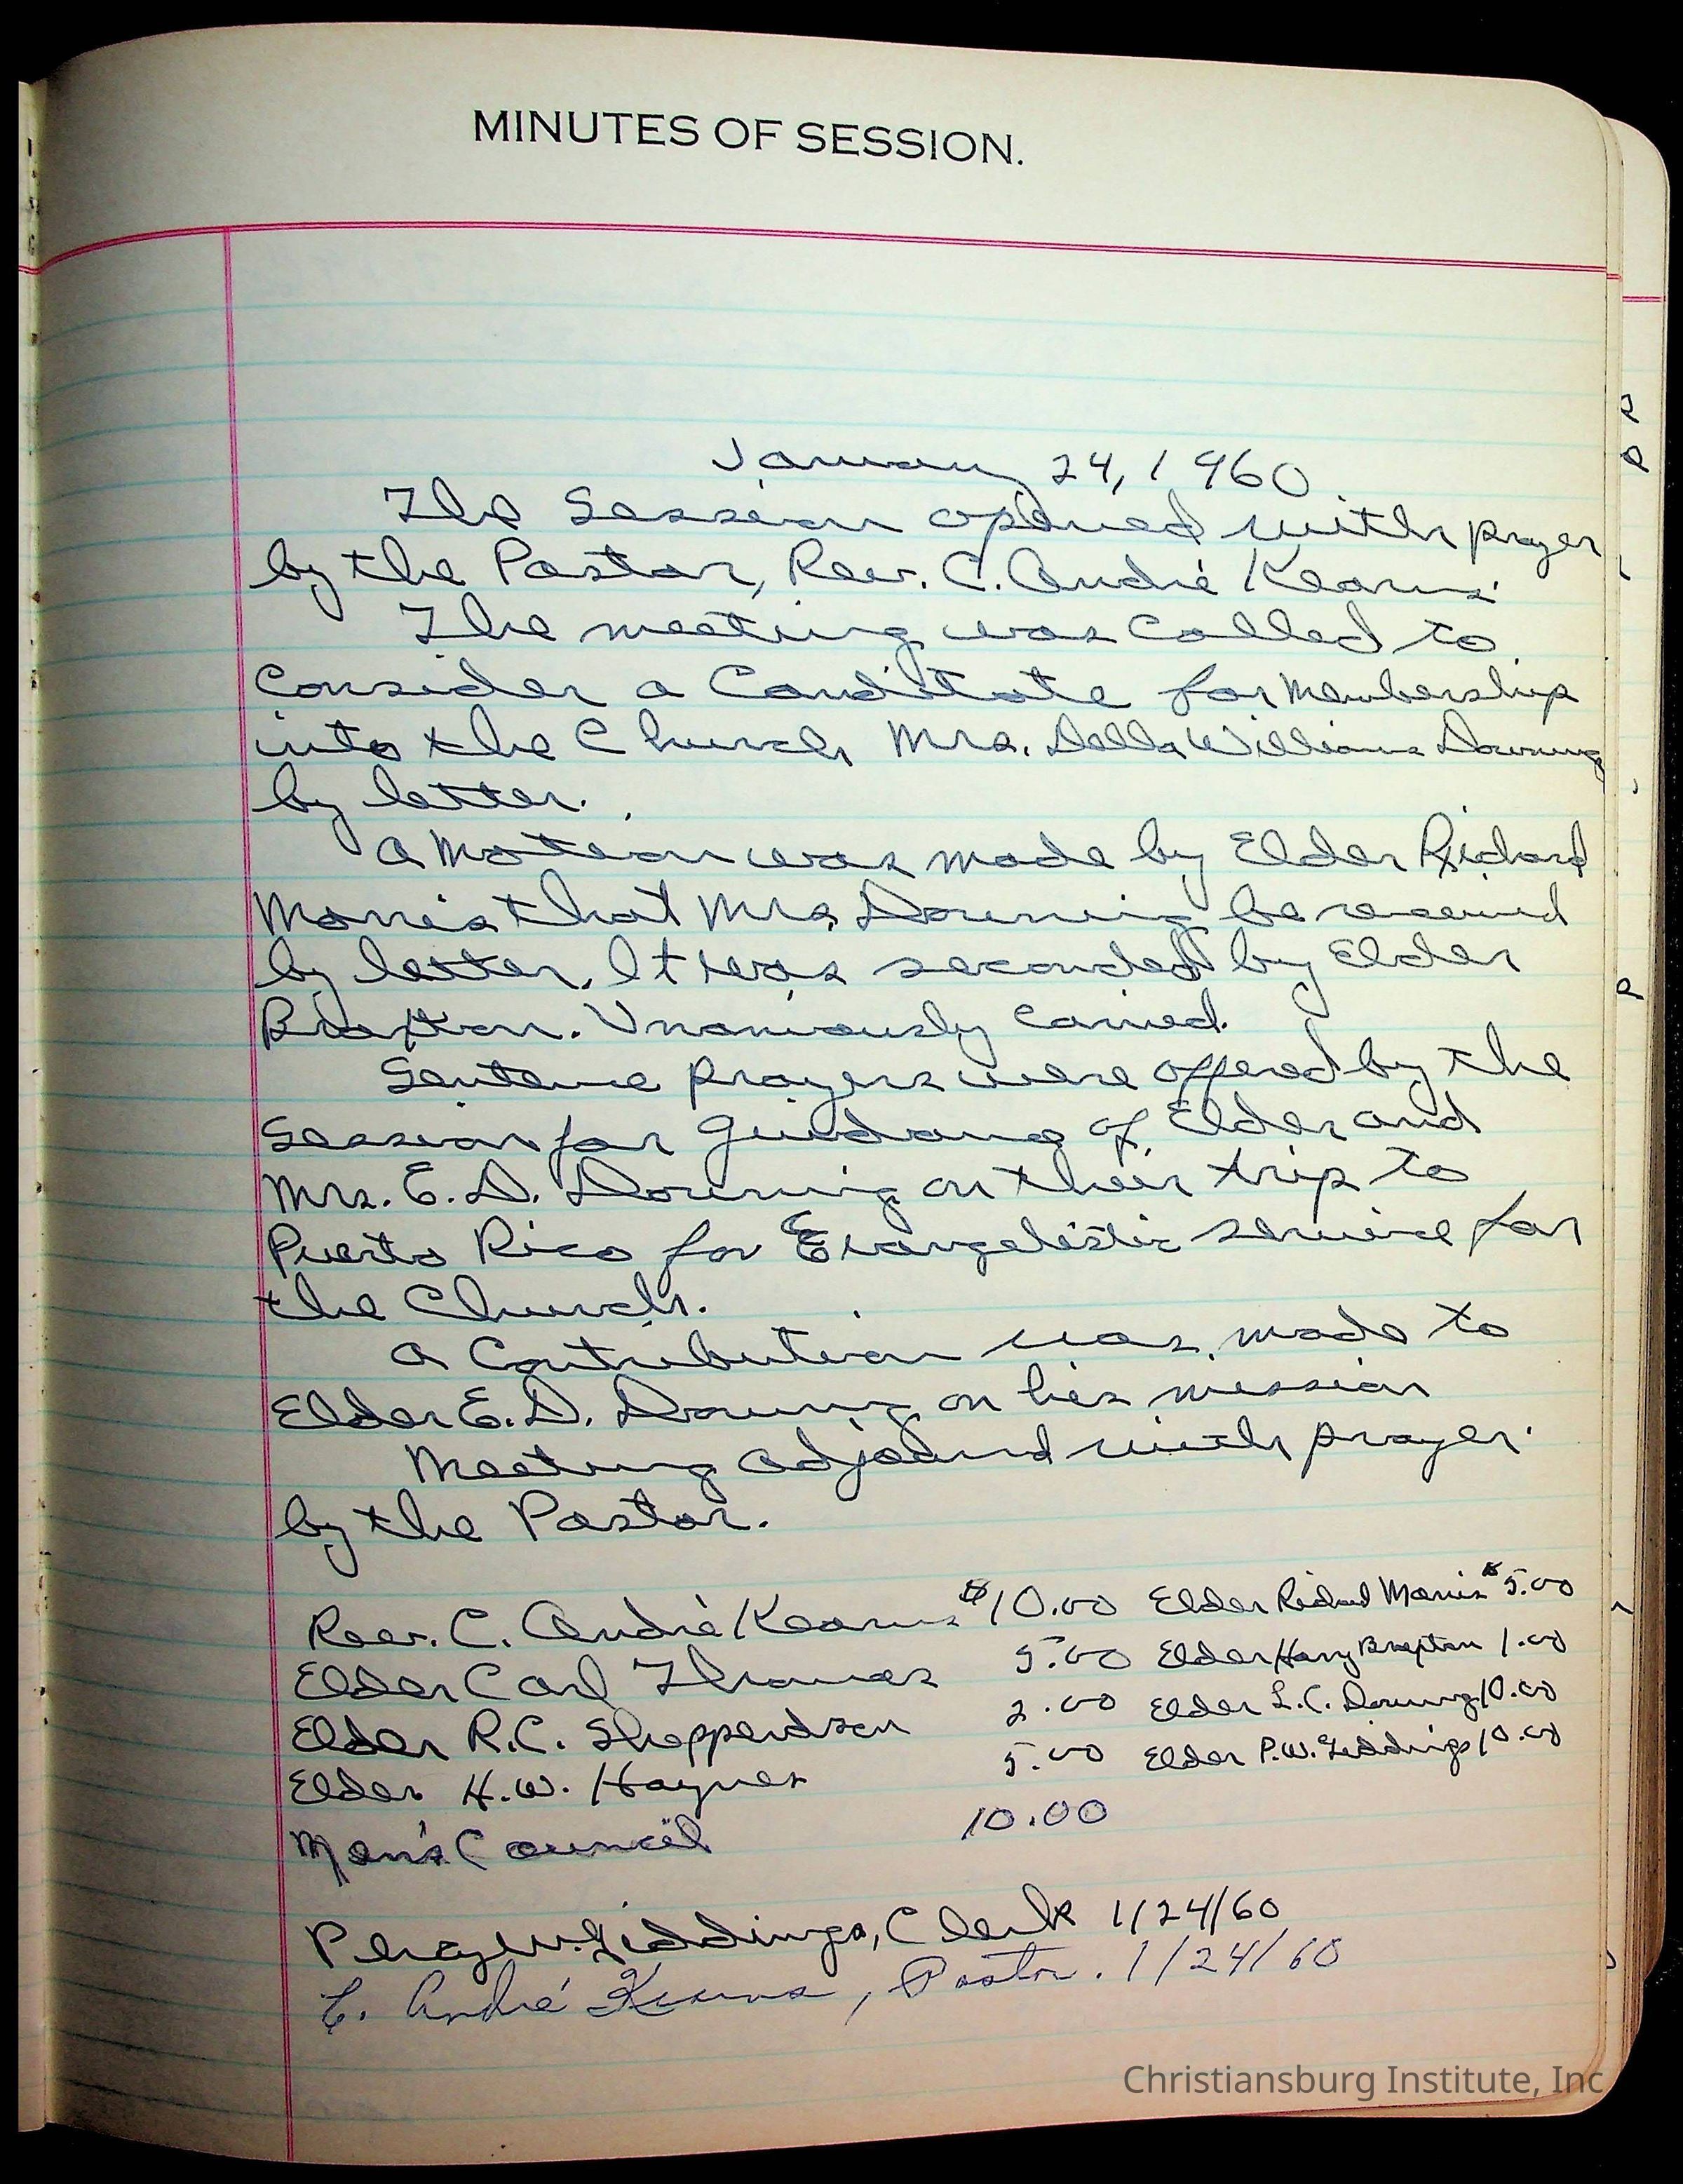 MINUTES OF SESSION.
January 24, 1960
The Session opened with prayer
by the Pastor, Rev. C. André Kearns.
The meeting was called to
consider a Canditate for Membership
into the Church Mrs. Della Williams Downing
by letter.
A Motion was made by Elder Richard
Morris that Mrs. Downing be received
by letter. It was seconded by Elder
Braxton. Unaniously Carried.
Sentence prayers were offered by the
Session for Guidance of Elder and
Mrs. E. D. Downing on their trip to
Puerto Rico for Evangelistic service for
the Church.
A Contribution was made to
Elder E. D. Downing on his mission
Meeting adjourned with prayer
by the Pastor.
Rev. C. André Kearns $10.00 Elder Richard Morris $5.00
Elder Carl Thomas 5.00 Elder Harry Braxton 1.00
Elder R.C. Shepperdson 2.00 Elder L.C. Downing 10.00
Elder H.W. Haynes 5.00 Elder P.W. Giddings 10.00
Men's Council 10.00
Percy W. Giddings, Clerk 1/24/60
C. André Kearns, Pastor. 1/24/60
Christiansburg Institute, Inc